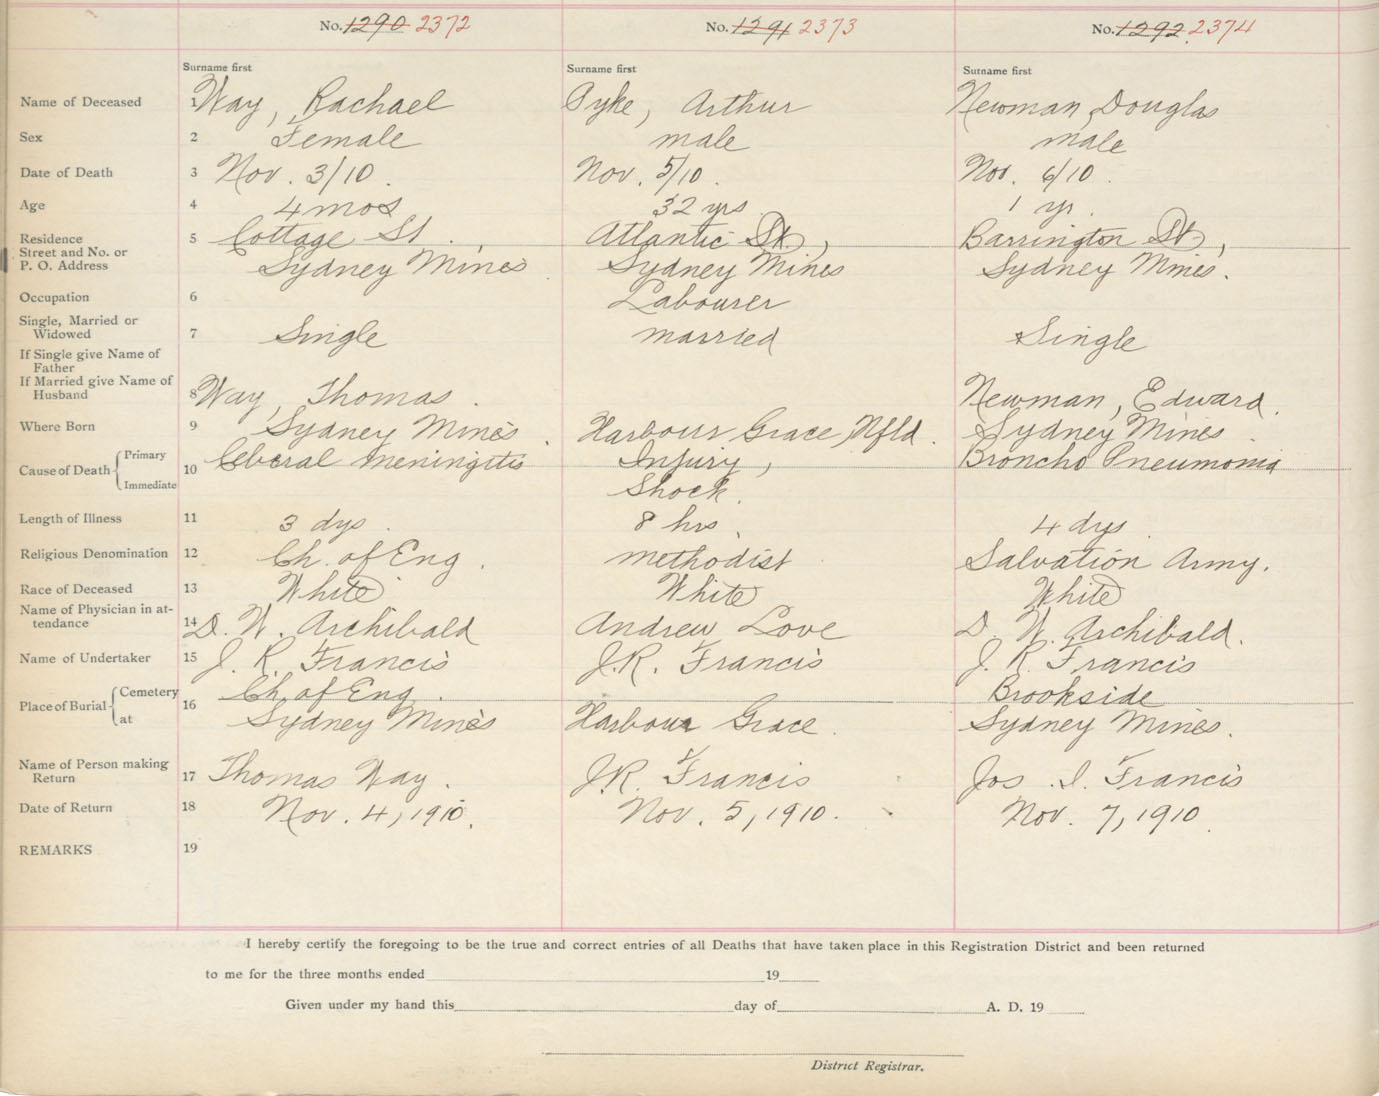 No. 1290 2372 No. 1291 2373 No. 1292 2374
Surname first Surname first Surname first
Name of Deceased 1 Way, Rachael Pyke, Arthur Newman, Douglas
Sex 2 Female male male
Date of Death 3 Nov. 3/10. Nov. 5/10. Nov. 6/10.
Age 4 4 mos 32 yrs 1 yr.
Residence 5 Cottage St., Atlantic St., Barrington St.,
Street and No. or
P. O. Address Sydney Mines Sydney Mines Sydney Mines.
Occupation 6 Labourer
Single, Married or
Widowed 7 Single married Single
If Single give Name of
Father
If Married give Name of
Husband 8 Way, Thomas. Newman, Edward.
Where Born 9 Sydney Mines. Harbour Grace, Nfld. Sydney Mines.
Cause of Death Primary 10 Cberal meningitis Injury, Broncho Pneumonia
Immediate Shock.
Length of Illness 11 3 dys. 8 hrs. 4 dys.
Religious Denomination 12 Ch. of Eng. methodist Salvation Army.
Race of Deceased 13 White White White
Name of Physician in at-
tendance 14 D. W. Archibald Andrew Love D. W. Archibald.
Name of Undertaker 15 J. R. Francis J.R. Francis J. R. Francis
Place of Burial Cemetery 16 Ch. of Eng. Brookside
at Sydney Mines Harbour Grace. Sydney Mines.
Name of Person making
Return 17 Thomas Way. J.R. Francis Jos. I. Francis
Date of Return 18 Nov. 4, 1910. Nov. 5, 1910. Nov. 7, 1910.
REMARKS 19
I hereby certify the foregoing to be the true and correct entries of all Deaths that have taken place in this Registration District and been returned
to me for the three months ended 19
Given under my hand this day of A. D. 19
District Registrar.